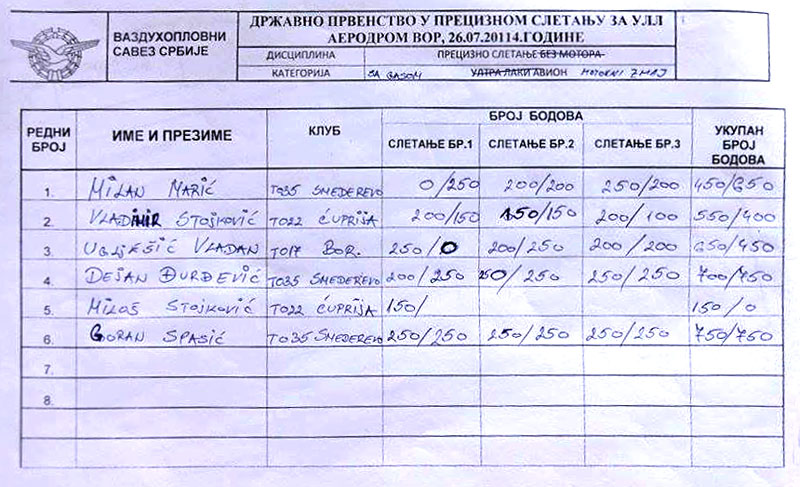 ВАЗДУХОПЛОВНИ
САВЕЗ СРБИЈЕ
ДРЖАВНО ПРВЕНСТВО У ПРЕЦИЗНОМ СЛЕТАЊУ ЗА УЛЛ
АЕРОДРОМ БОР, 26.07.20114.ГОДИНЕ
ДИСЦИПЛИНА ПРЕЦИЗНО СЛЕТАЊЕ БЕЗ МОТОРА
КАТЕГОРИЈА SA GASOM УЛТРА ЛАКИ АВИОН MOTORNI ZMAJ
РЕДНИ БРОЈ ИМЕ И ПРЕЗИМЕ КЛУБ БРОЈ БОДОВА УКУПАН БРОЈ БОДОВА
СЛЕТАЊЕ БР.1 СЛЕТАЊЕ БР.2 СЛЕТАЊЕ БР.3
1. MILAN MARIĆ TO35 SMEDEREVO 0/250 200/200 250/200 450/650
2. VLADIMIR STOJKOVIĆ TO22 ĆUPRIJA 200/150 150/150 200/100 550/400
3. UGLJEŠIĆ VLADAN TO17 BOR. 250/0 200/250 200/200 650/450
4. DEJAN ĐURĐEVIĆ TO35 SMEDEREVO 200/250 250/250 250/250 700/750
5. MILOŠ STOJKOVIĆ TO22 ĆUPRIJA 150/ 150/0
6. GORAN SPASIĆ TO35 SMEDEREVO 250/250 250/250 250/250 750/750
7.
8.